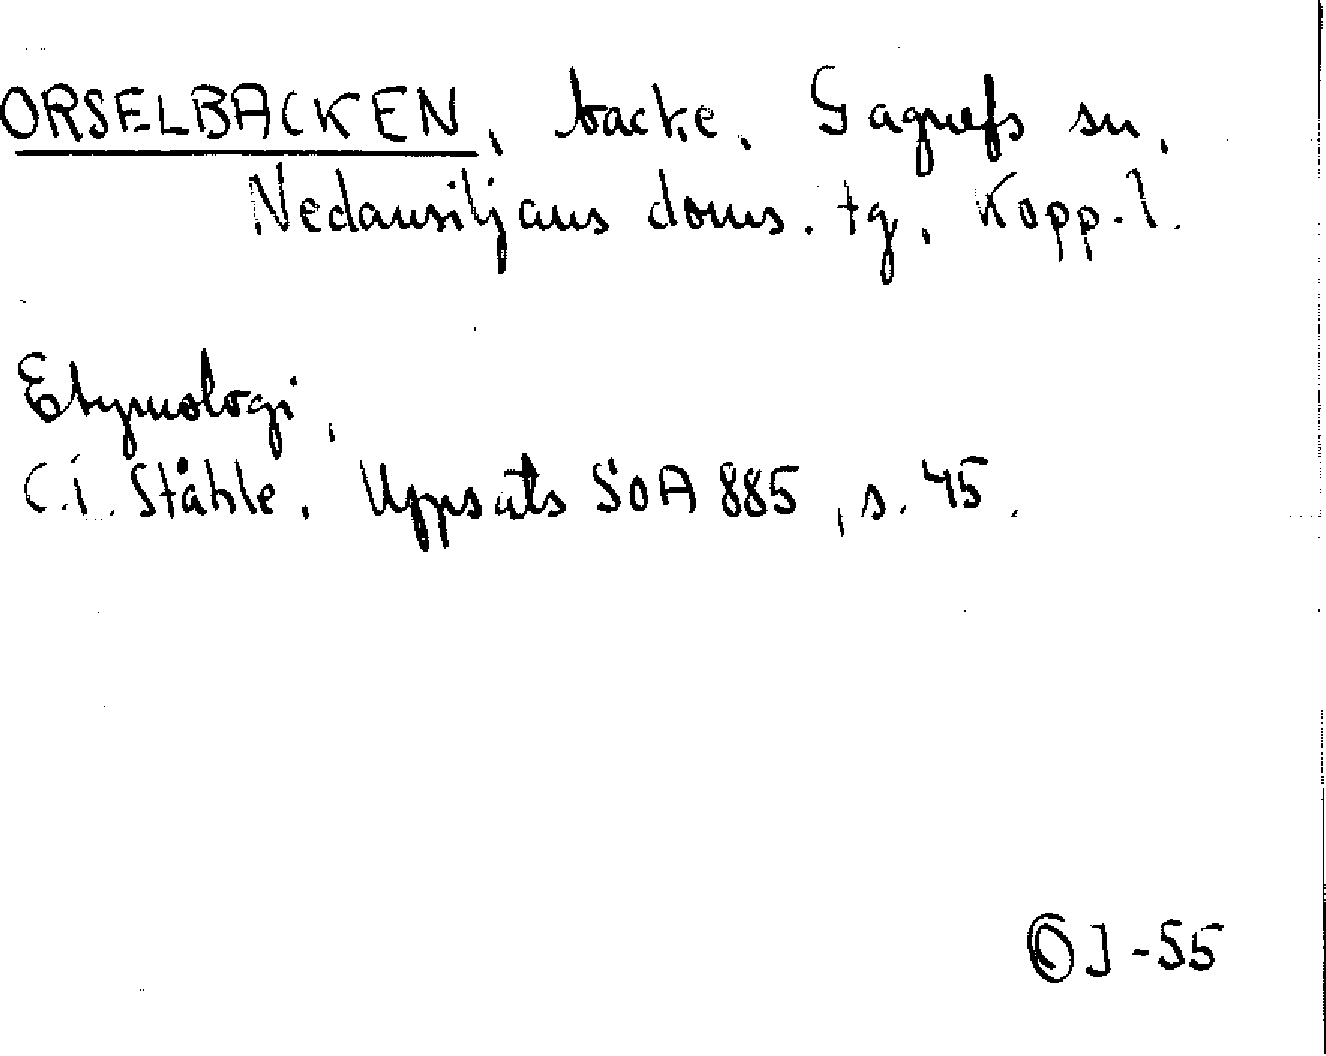 ORSELBACKEN, backe, Gagnefs sn,
Nedansiljans doms. tg, Kopp. l.
Etymologi,
C.I. Ståhle, Uppsats SOA 885, s. 45.
OJ -55